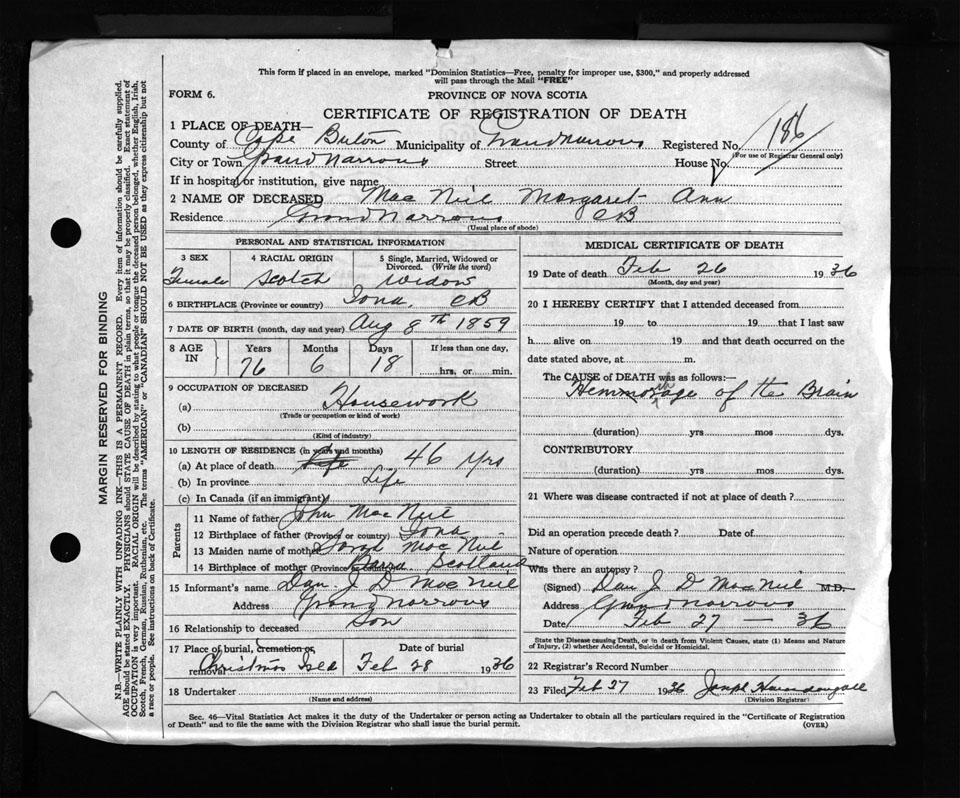 This form if placed in an envelope, marked "Dominion Statistics—Free, penalty for improper use, $300," and properly addressed
will pass through the Mail "FREE"
FORM 6.
PROVINCE OF NOVA SCOTIA
CERTIFICATE OF REGISTRATION OF DEATH
1 PLACE OF DEATH—
County of Cape Breton Municipality of Grand Narrows Registered No. 186
(For use of Registrar General only)
City or Town Grand Narrows Street House No.
If in hospital or institution, give name
2 NAME OF DECEASED Mac Neil Margaret Ann
Residence Grand Narrows CB
(Usual place of abode)
PERSONAL AND STATISTICAL INFORMATION
3 SEX 4 RACIAL ORIGIN 5 Single, Married, Widowed or Divorced. (Write the word)
Female Scotch Widow
6 BIRTHPLACE (Province or country) Iona, CB
7 DATE OF BIRTH (month, day and year) Aug 8th 1859
8 AGE IN Years Months Days If less than one day,
76 6 18 hrs. or min.
9 OCCUPATION OF DECEASED
(a) Housework
(Trade or occupation or kind of work)
(b)
(Kind of industry)
10 LENGTH OF RESIDENCE (in years and months)
(a) At place of death Life 46 yrs
(b) In province Life
(c) In Canada (if an immigrant)
Parents
11 Name of father John Mac Neil
12 Birthplace of father (Province or country) Iona
13 Maiden name of mother Sarah Mac Neil
14 Birthplace of mother (Province or country) Barra Scotland
15 Informant's name Dan J D Mac Neil
Address Grand Narrows
16 Relationship to deceased Son
17 Place of burial, cremation or removal Date of burial
Christmas Isld Feb 28 1936
18 Undertaker
(Name and address)
MEDICAL CERTIFICATE OF DEATH
19 Date of death Feb 26 1936
(Month, day and year)
20 I HEREBY CERTIFY that I attended deceased from
19 to 19 that I last saw
h alive on 19 and that death occurred on the
date stated above, at m.
The CAUSE of DEATH was as follows:—
Hemmorhage of the Brain
(duration) yrs mos dys.
CONTRIBUTORY
(duration) yrs mos dys.
21 Where was disease contracted if not at place of death?
Did an operation precede death? Date of
Nature of operation
Was there an autopsy?
(Signed) Dan J D Mac Neil M.D.
Address Grand Narrows
Date Feb 27 — 36
State the Disease causing Death, or in death from Violent Causes, state (1) Means and Nature
of Injury, (2) whether Accidental, Suicidal or Homicidal.
22 Registrar's Record Number
23 Filed Feb 27 1936
(Division Registrar)
Sec. 46—Vital Statistics Act makes it the duty of the Undertaker or person acting as Undertaker to obtain all the particulars required in the "Certificate of Registration
of Death" and to file the same with the Division Registrar who shall issue the burial permit. (OVER)
MARGIN RESERVED FOR BINDING
N.B.—WRITE PLAINLY WITH UNFADING INK—THIS IS A PERMANENT RECORD. Every item of information should be carefully supplied.
AGE should be stated EXACTLY. PHYSICIANS should STATE CAUSE OF DEATH in plain terms, so that it may be properly classified. Exact statement of
OCCUPATION is very important. RACIAL ORIGIN will be described by stating to what people or tongue the deceased person belonged, whether English, Irish,
Scotch, French, German, Russian, Ruthenian, etc. The terms "AMERICAN" or "CANADIAN" SHOULD NOT BE USED as they express citizenship but not
a race or people. See instructions on back of Certificate.